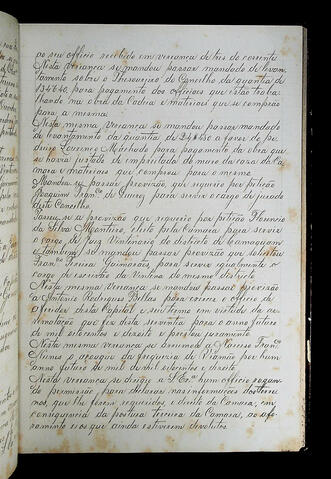 ao seu officio recebido em vereança de tres do corrente
Nesta vereança se mandou passar mandado de levan-
tamento sobre o Thesoureiro do Concelho da quantia de
134640, para pagamento dos officiaes que estão traba
lhando na obra da Cadea e materiaes que se comprão
para a mesma.
Nesta mesma vereança se mandou passar mandado
de levantamento da quantia de a favor do pe
dreiro Lourenço Machado para pagamento da obra que
se havia justado de empreitada do muro da caza da Ca
mara e materiaes que comprou para o mesmo
Mandou-se passar provizão, que requereo por petição
Joaquim Franco. de para servir o cargo de jurado
deste Concelho.
Passou-se a provizão que requereo por petição Florencio
da Silva Monteiro, eleito pela Camara para servir
o cargo de Juiz Vintenario do districto de Camaquam
e tambem se mandou passar provizão que solicitou
Franco. Vieira Guimarães, para servir igualmente o
cargo de escrivão da Vintena do mesmo districto
Nesta mesma vereança se mandou passar provizão
a Antonio Rodrigues Bellas para exercer o officio de
afferidor desta Capital e seu termo em virtude da ar-
rematação que fez desta serventia para o anno futuro
de mil oitocentos e direito e prestou juramento.
Nesta mesma vereança se arrematou a Narciso Franco.
Nunes o açougue da freguezia de Viamão por hum
anno futuro de mil oitocentos e direito.
Nesta vereança se dirigio a S. Exa. hum officio rogan-
do permissão para declarar nas informações dos terre
nos, que lhe forem requeridos, o direito da Camara, em
consequencia da postura terceira da Camara, ao afo-
ramento e os que ainda estiverem devolutos.